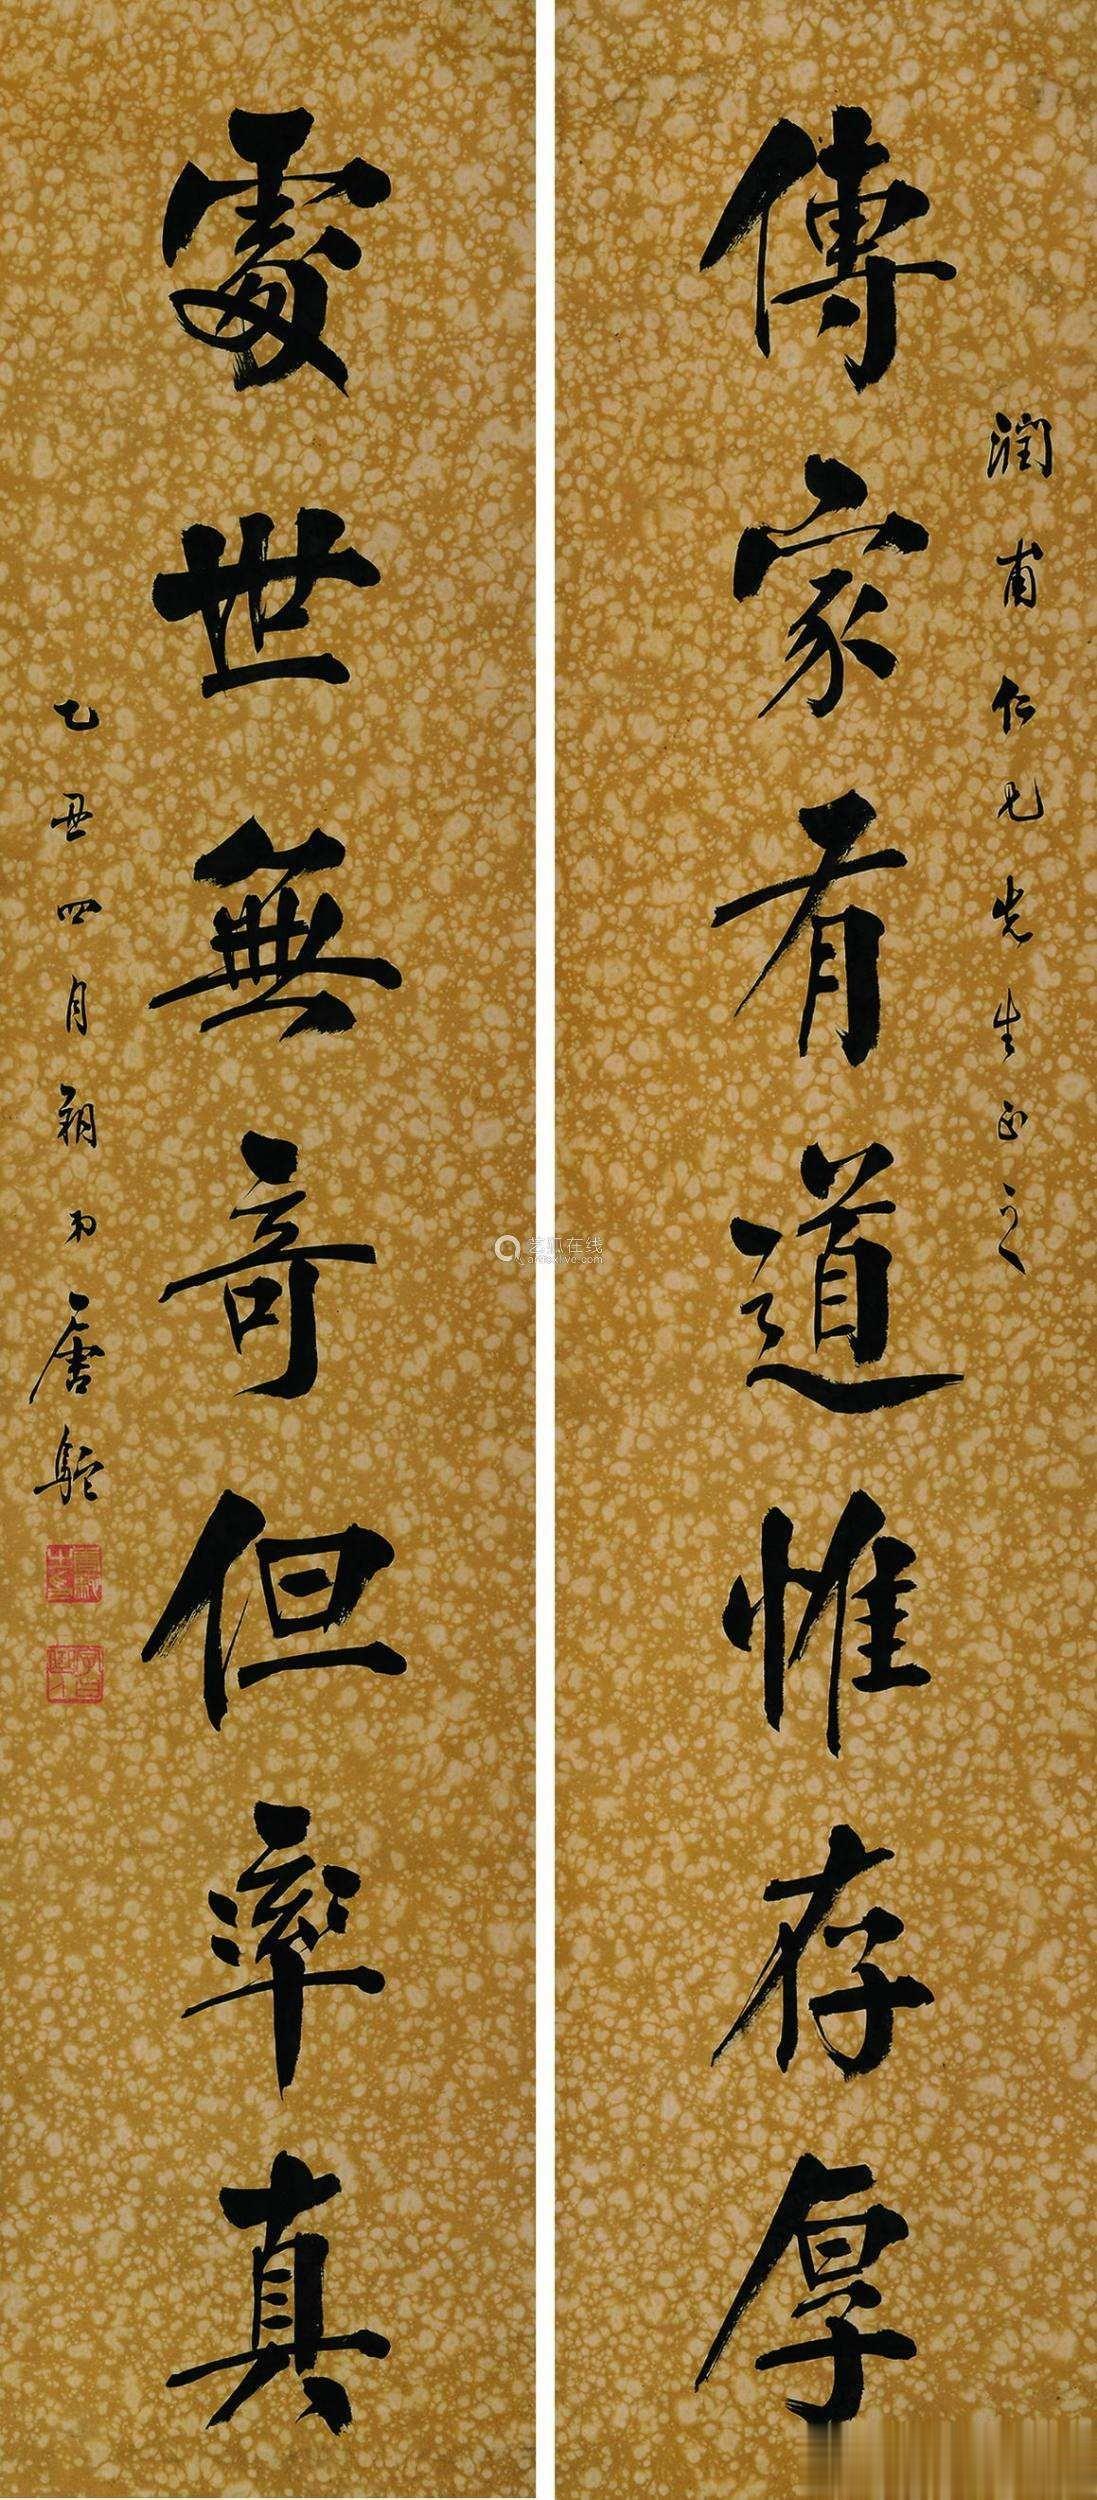 潤甫仁兄先生正之
傳家有道惟存厚
處世無奇但率真
乙丑四月朔弟唐駝
艺狐在线
artfoxlive.com